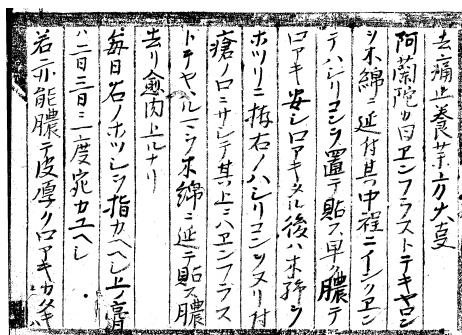 去痛止養芽方大蓡
阿蘭陀ノ曰ヱンフラストテキヤロン
シ木綿ニ延付其中程ニインクヱン
テハシリコンヲ置テ貼ス早ク膿テ
口アキ安シ口アキタル後ハ木綿ノ
ホツリニ右ノハシリコンヲヌリ付
瘡ノ口ニサシテ其上ニハヱンフラス
トテヤハルヘシ木綿ニ延テ貼ス膿
去リ愈肉上ルナリ
毎日右ノホツレヲ指カヘシ上ノ膏
ハ二日三日ニ一度宛カユヘシ
若亦能膿テ皮厚ク口アキカタキ